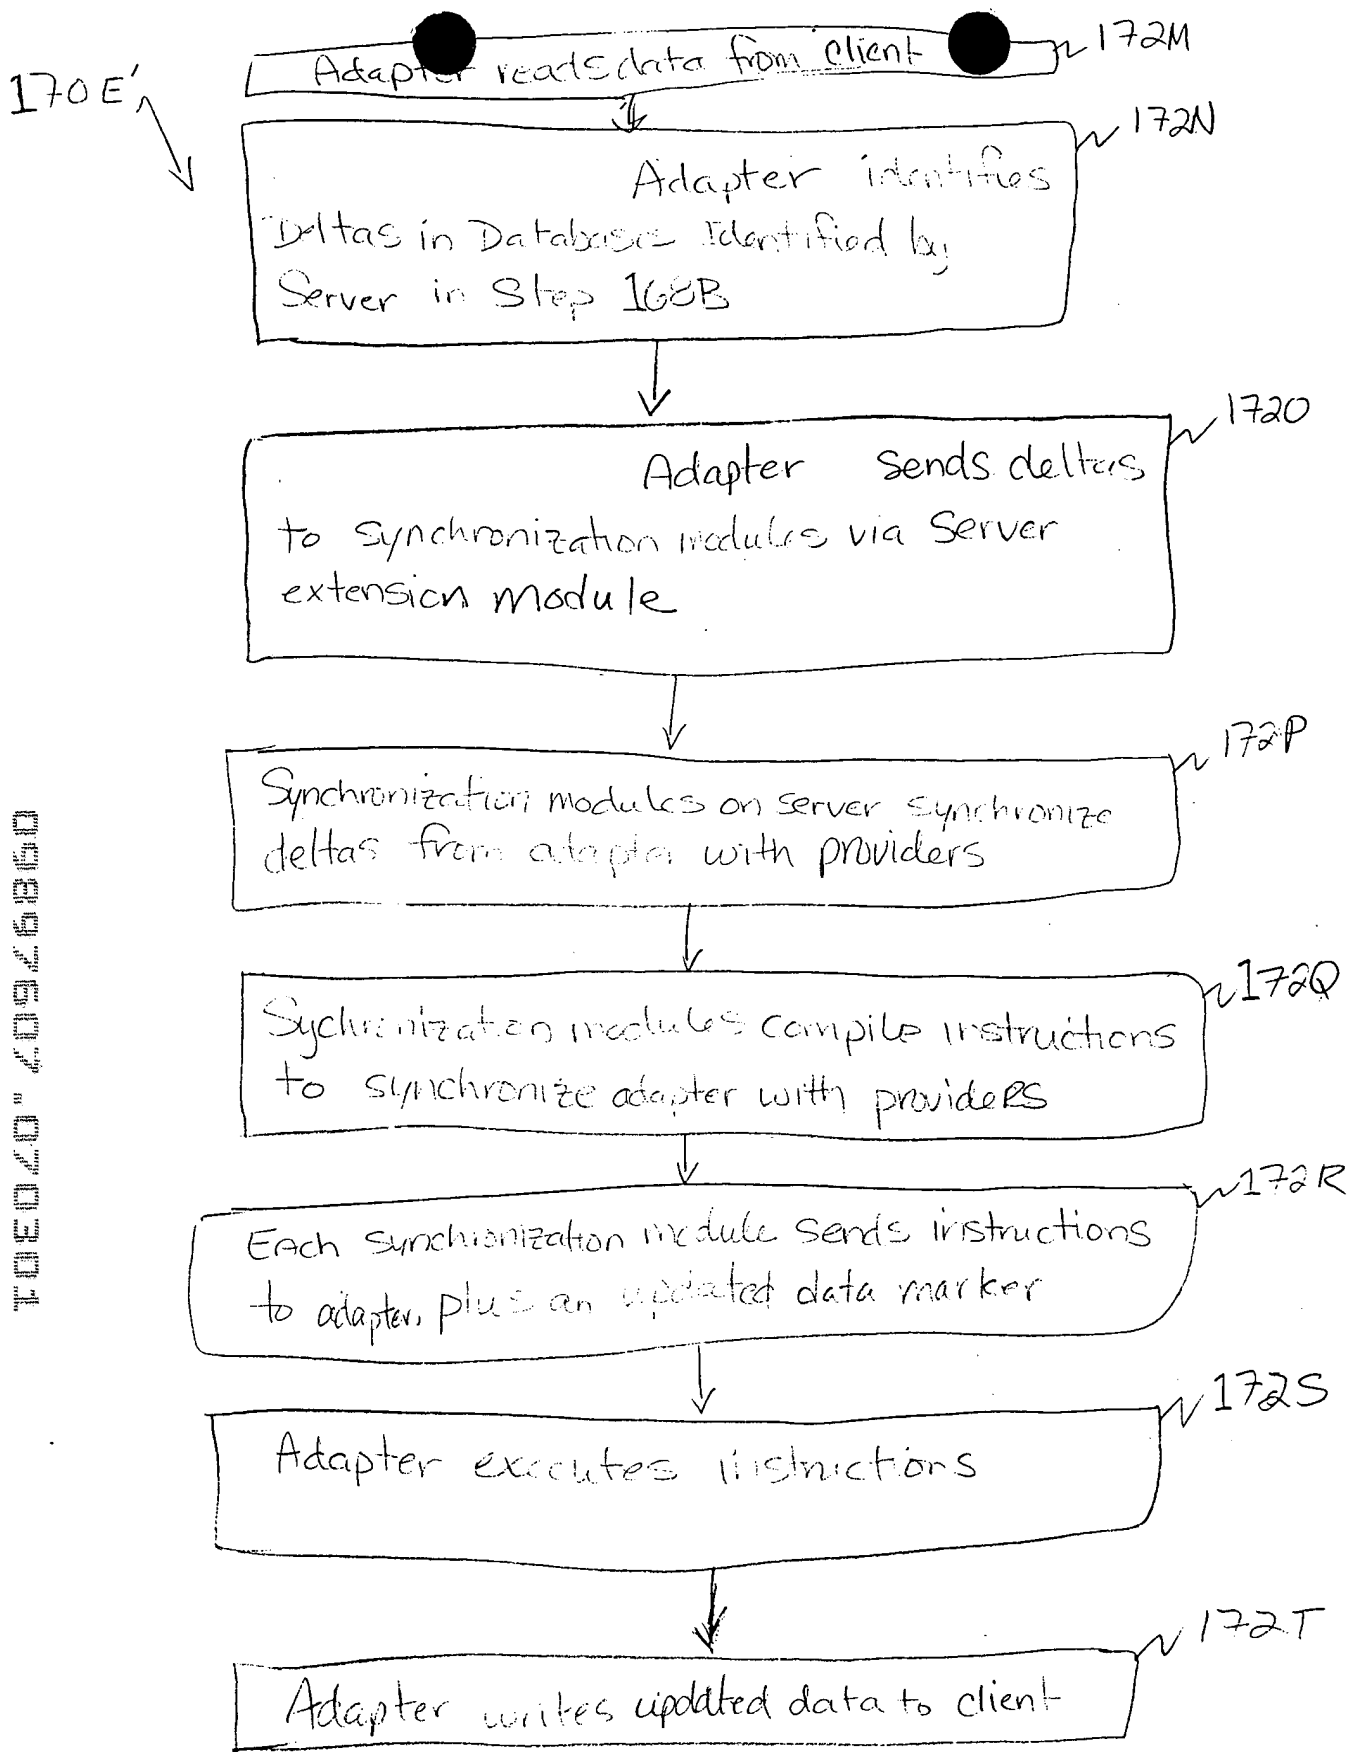 172M
Adapter reads data from client
170E'
172N
Adapter identifies
Deltas in Databases Identified by
Server in Step 168B
172O
Adapter sends deltas
to synchronization modules via Server
extension module
172P
Synchronization modules on server synchronize
deltas from adapter with providers
172Q
Sychronization modules compile instructions
to synchronize adapter with providers
172R
Each synchronization module sends instructions
to adapter, plus an updated data marker
172S
Adapter executes instructions
172T
Adapter writes updated data to client
09897685.070301